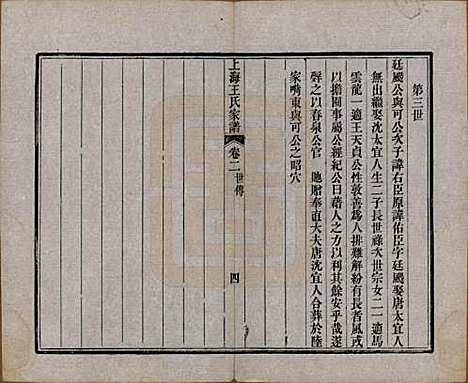 第三世
廷颺公與可公次子諱右臣原諱佑臣字廷颺娶唐太宜人
無出繼娶沈太宜人生二子長世祿次世宗女二一適馬
雲龍一適王天貞公性敦善爲人排難解紛有長者風戎
以擔圖事屬公經紀公曰藉人之方以利其餘安乎哉遂
聲之以春泉公官 貤贈奉直大夫唐沈宜人合葬於陸
家嘴東與可公之昭穴
上海王氏家譜
卷二 世傳
四